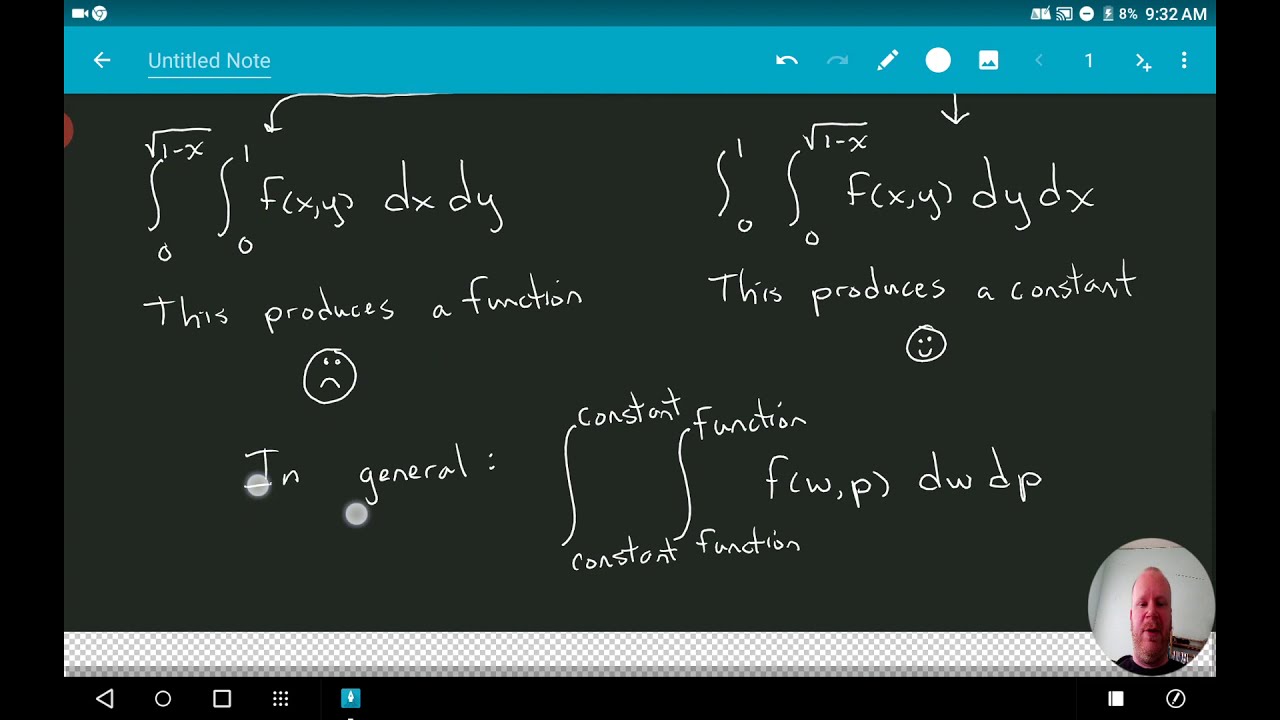 8% 9:32 AM
Untitled Note
1
∫₀^√(1-x) ∫₀^1 f(x,y) dx dy
∫₀^1 ∫₀^√(1-x) f(x,y) dy dx
This produces a function
This produces a constant
In general: ∫_constant^constant ∫_function^function f(w,p) dw dp